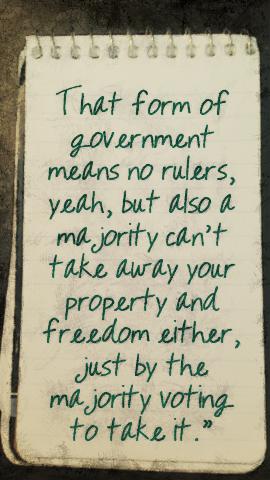 That form of
government
means no rulers,
yeah, but also a
majority can't
take away your
property and
freedom either,
just by the
majority voting
to take it."